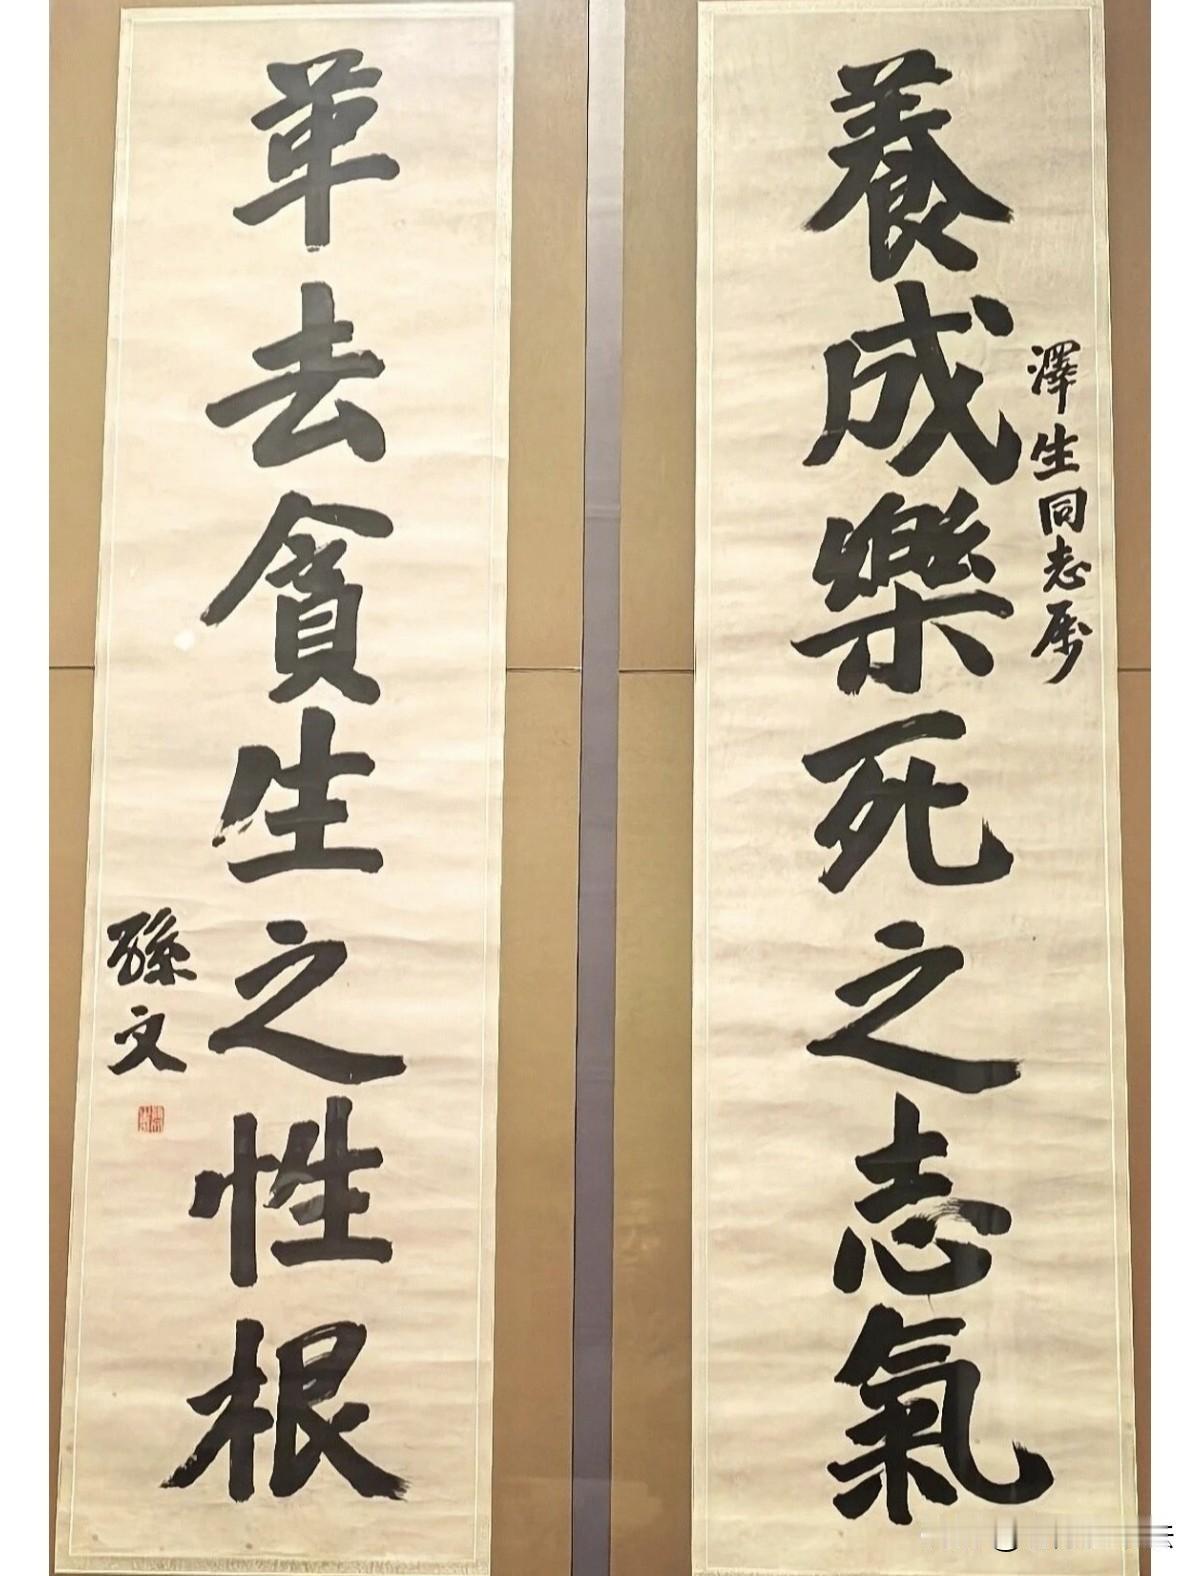 澤生同志屬
養成樂死之志氣
革去貪生之性根
孫文